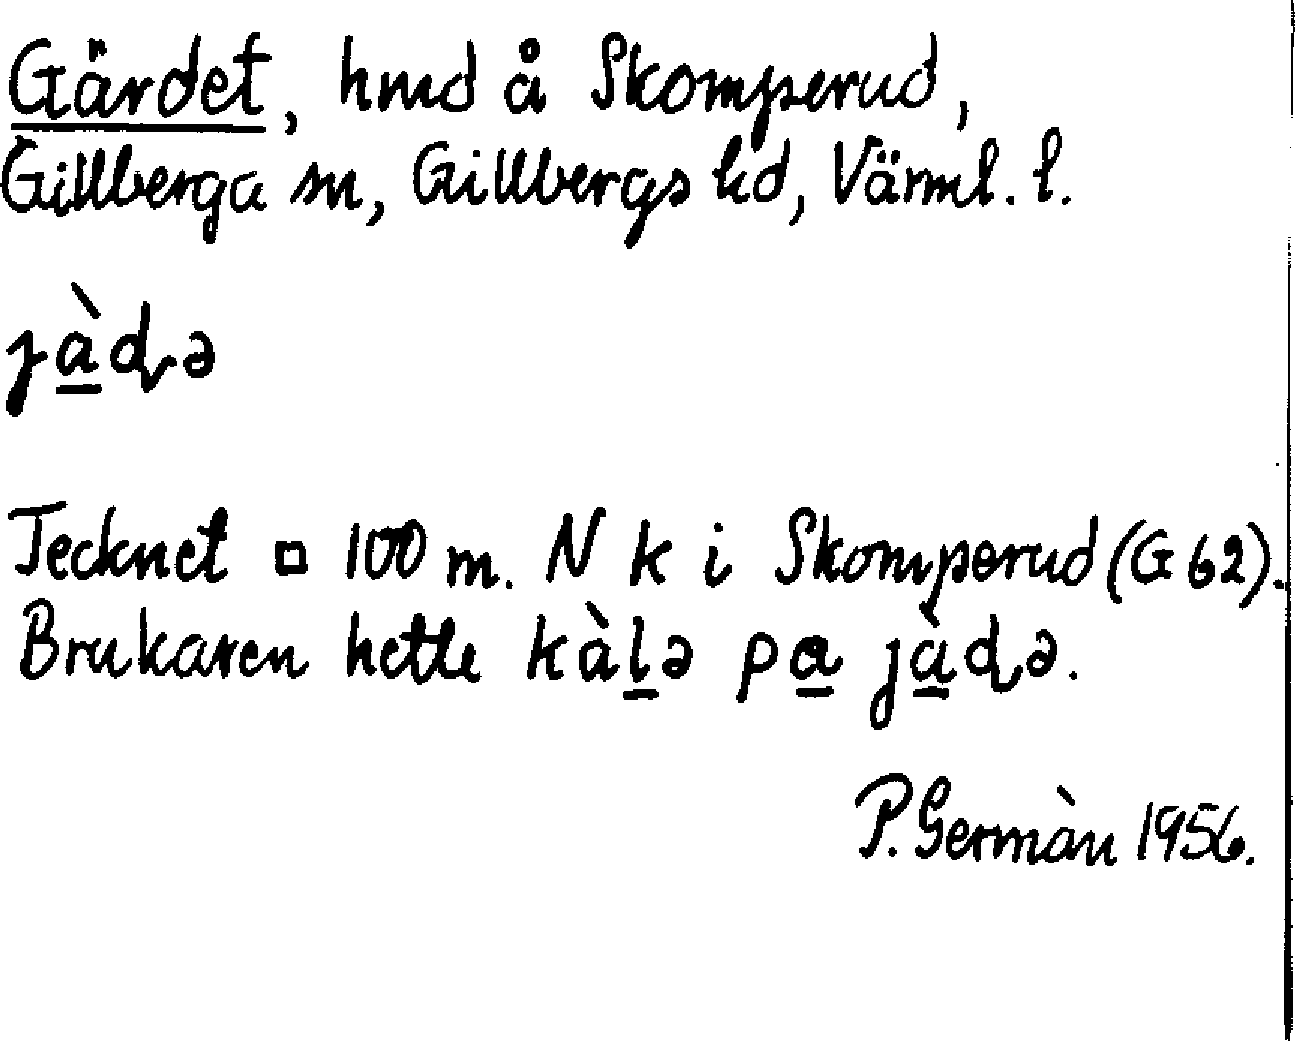 Gärdet, hmd å Skomperud,
Gillberga sn, Gillbergs hd, Värml. l.
jà̱ɖə
Tecknet □ 100 m. N k i Skomperud (G 62).
Brukaren hette kàḻə pa̱ jà̱ɖə.
P. Germàn 1956.